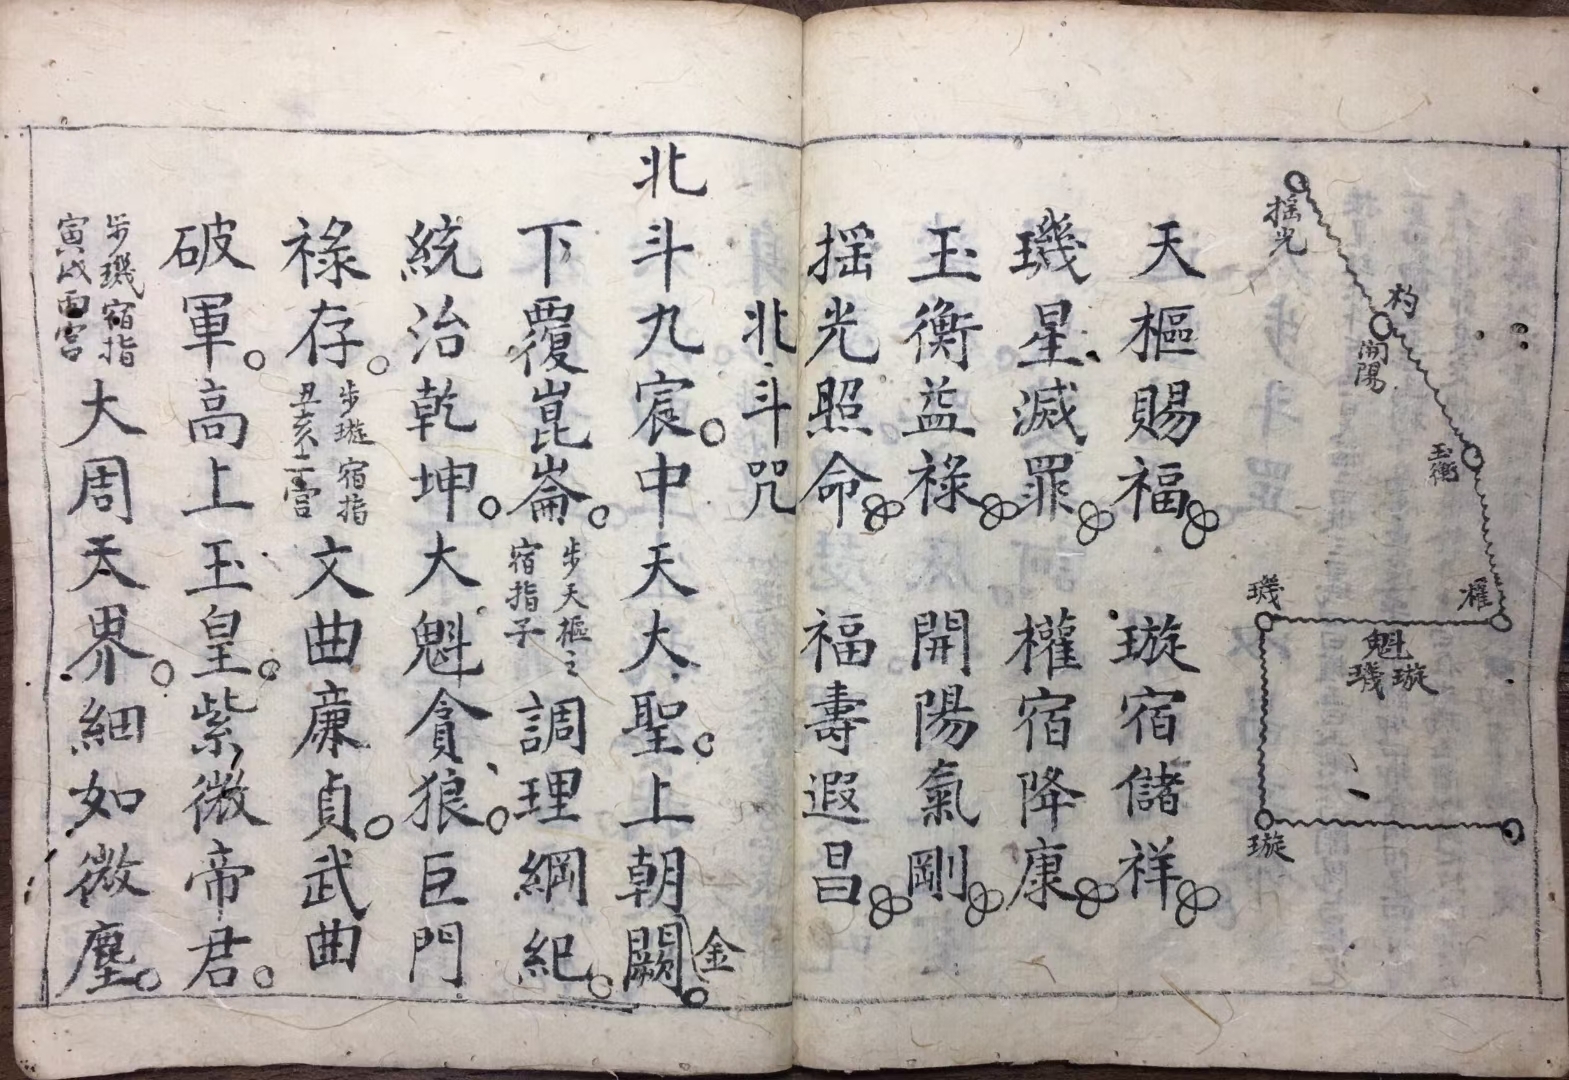 揺光
杓
開陽
玉衡
權
璣
魁
璇璣
璇
天樞賜福 璇宿儲祥
璣星滅罪 權宿降康
玉衡益祿 開陽氣剛
揺光照命 福壽遐昌
北斗咒
北斗九宸中天大聖上朝金闕
下覆崑崙步天樞之宿指子調理綱紀
統治乾坤大魁貪狼巨門
祿存步璇宿指丑亥二宫文曲廉貞武曲
破軍高上玉皇紫微帝君
步璣宿指寅戌兩宫大周天界細如微塵